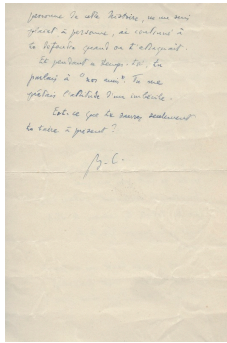 personne de cette histoire, ne me suis
plaint à personne, ai continué à
te défendre quand on t'attaquait.
Et pendant ce temps-là, tu
parlais à "nos amis". Tu me
prêtais l'attitude d'un
Est-ce que tu sauras seulement
te taire à présent ?